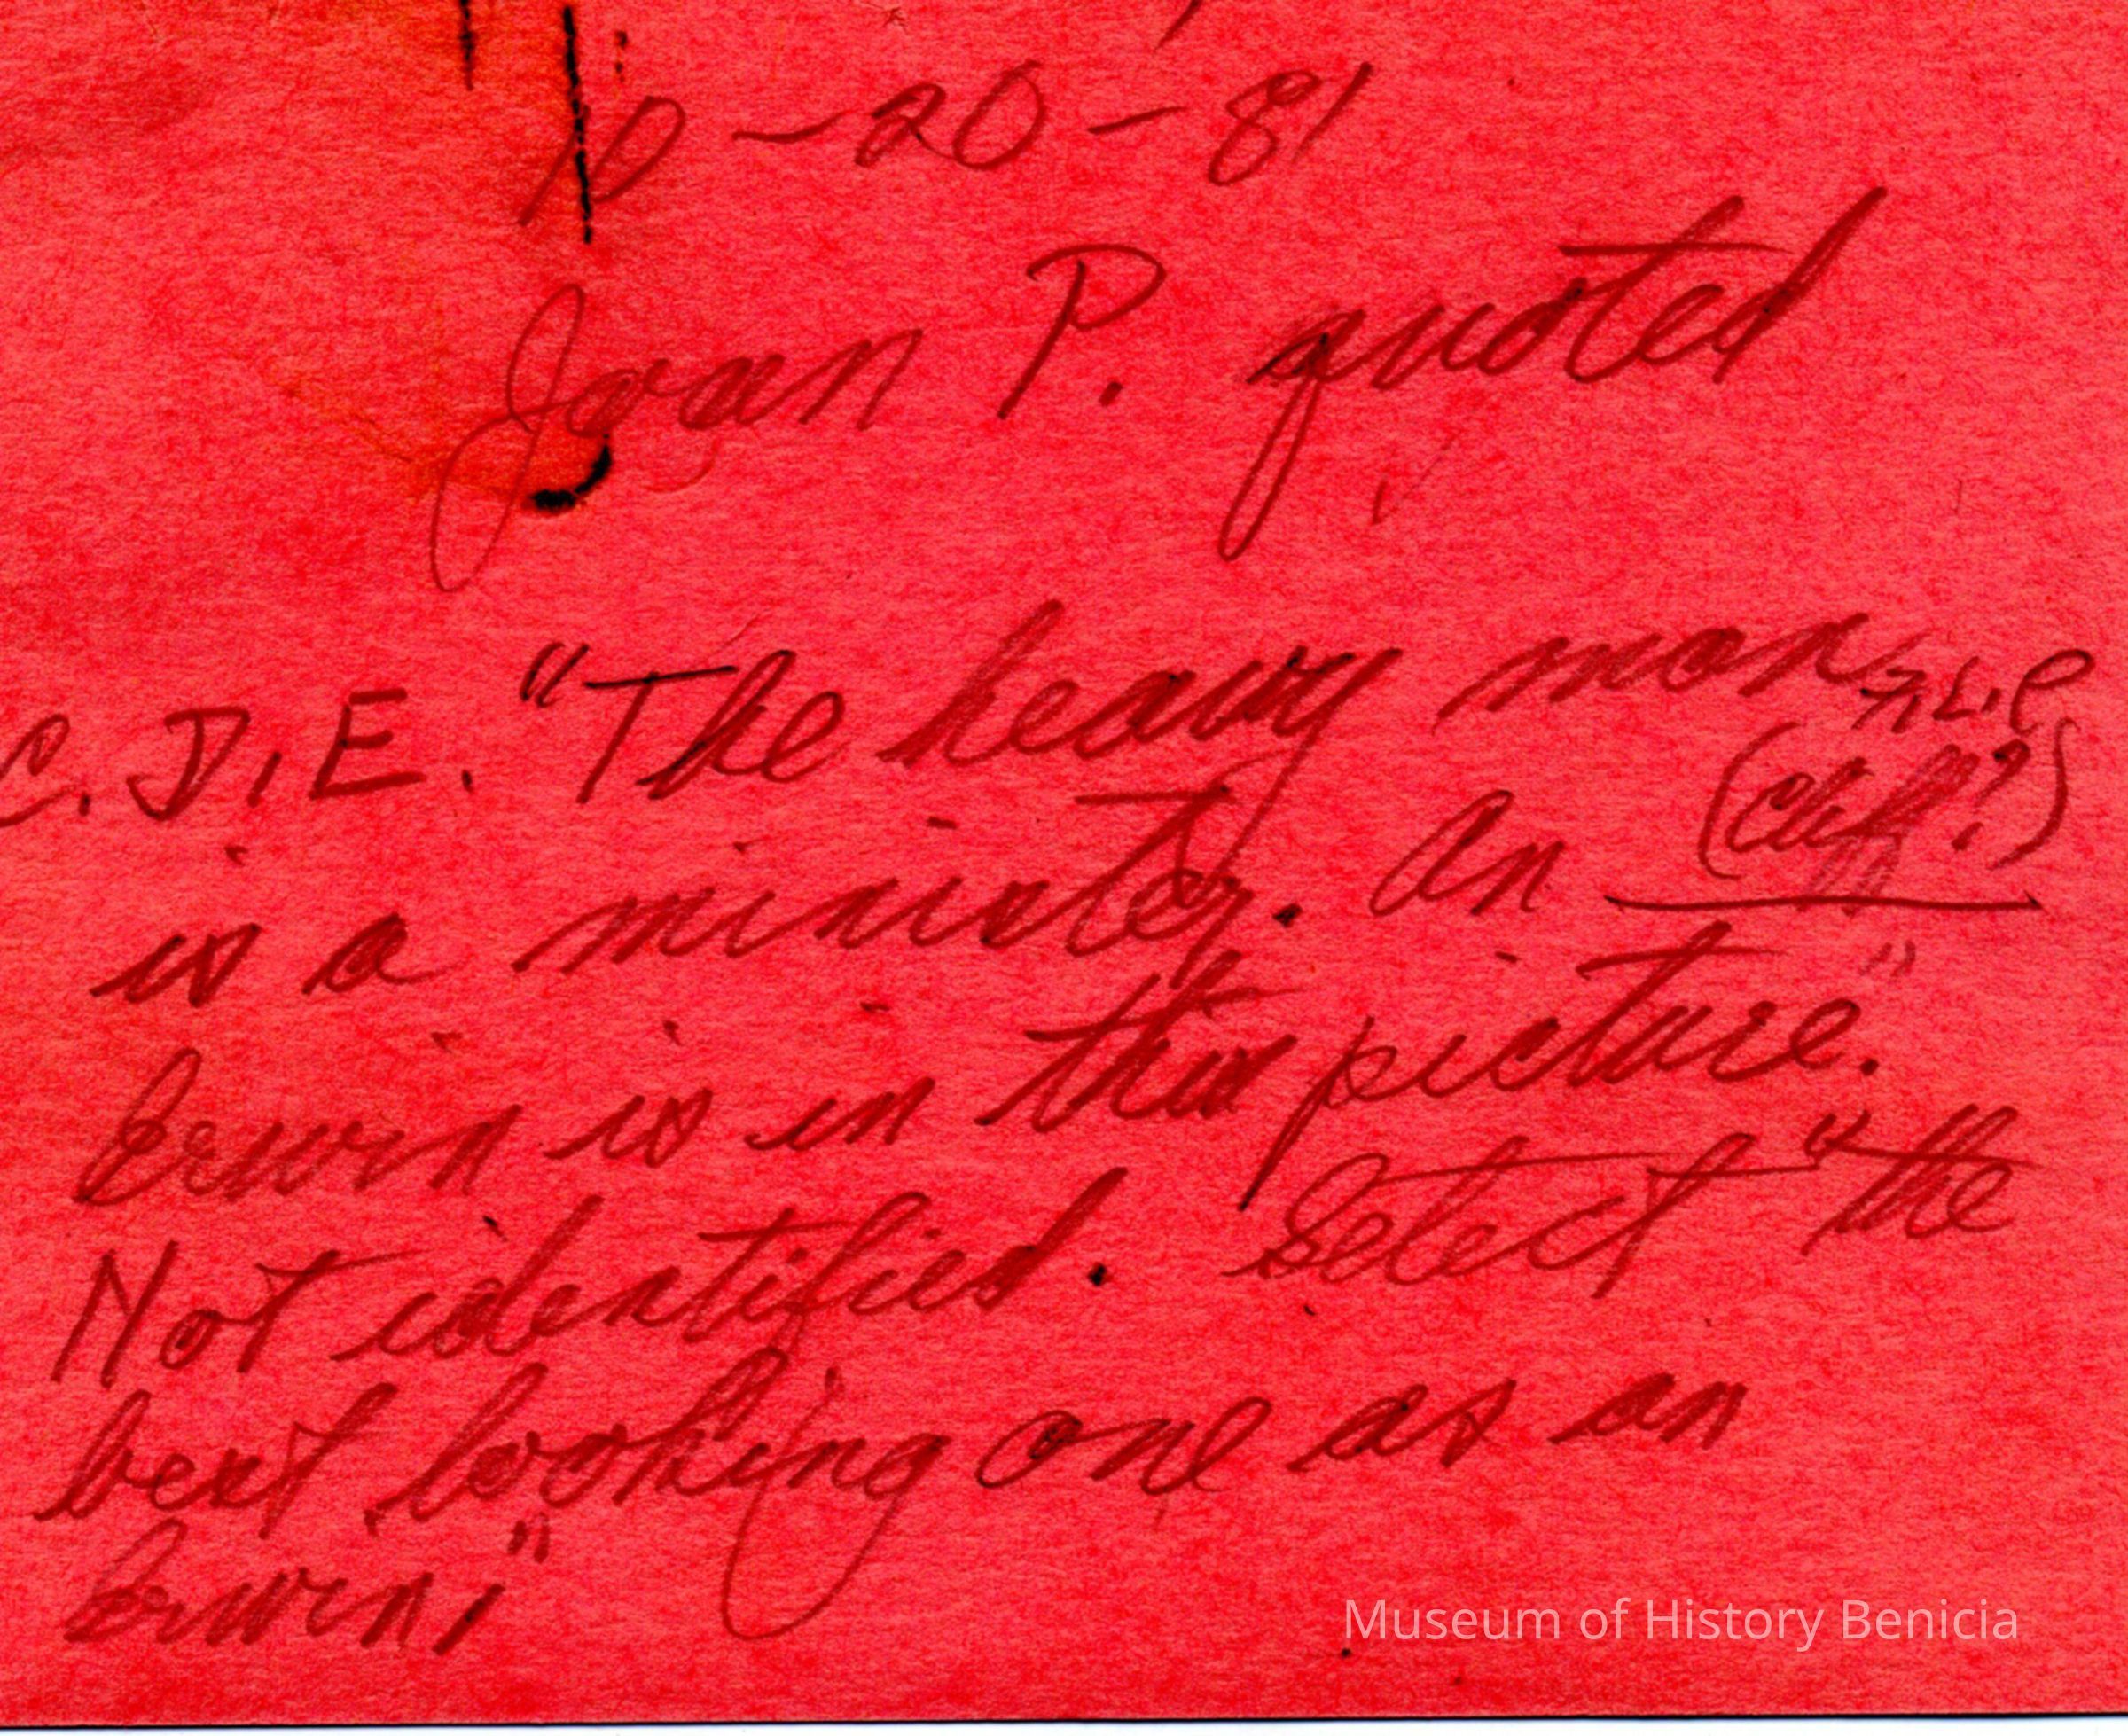 10-20-81
Joan P. quoted
C.J.E. "The heavy man
(Cliff?)
is a minister. An
Erwin is in this picture."
Not identified. Select "the
best looking one as an
Erwin"
Museum of History Benicia